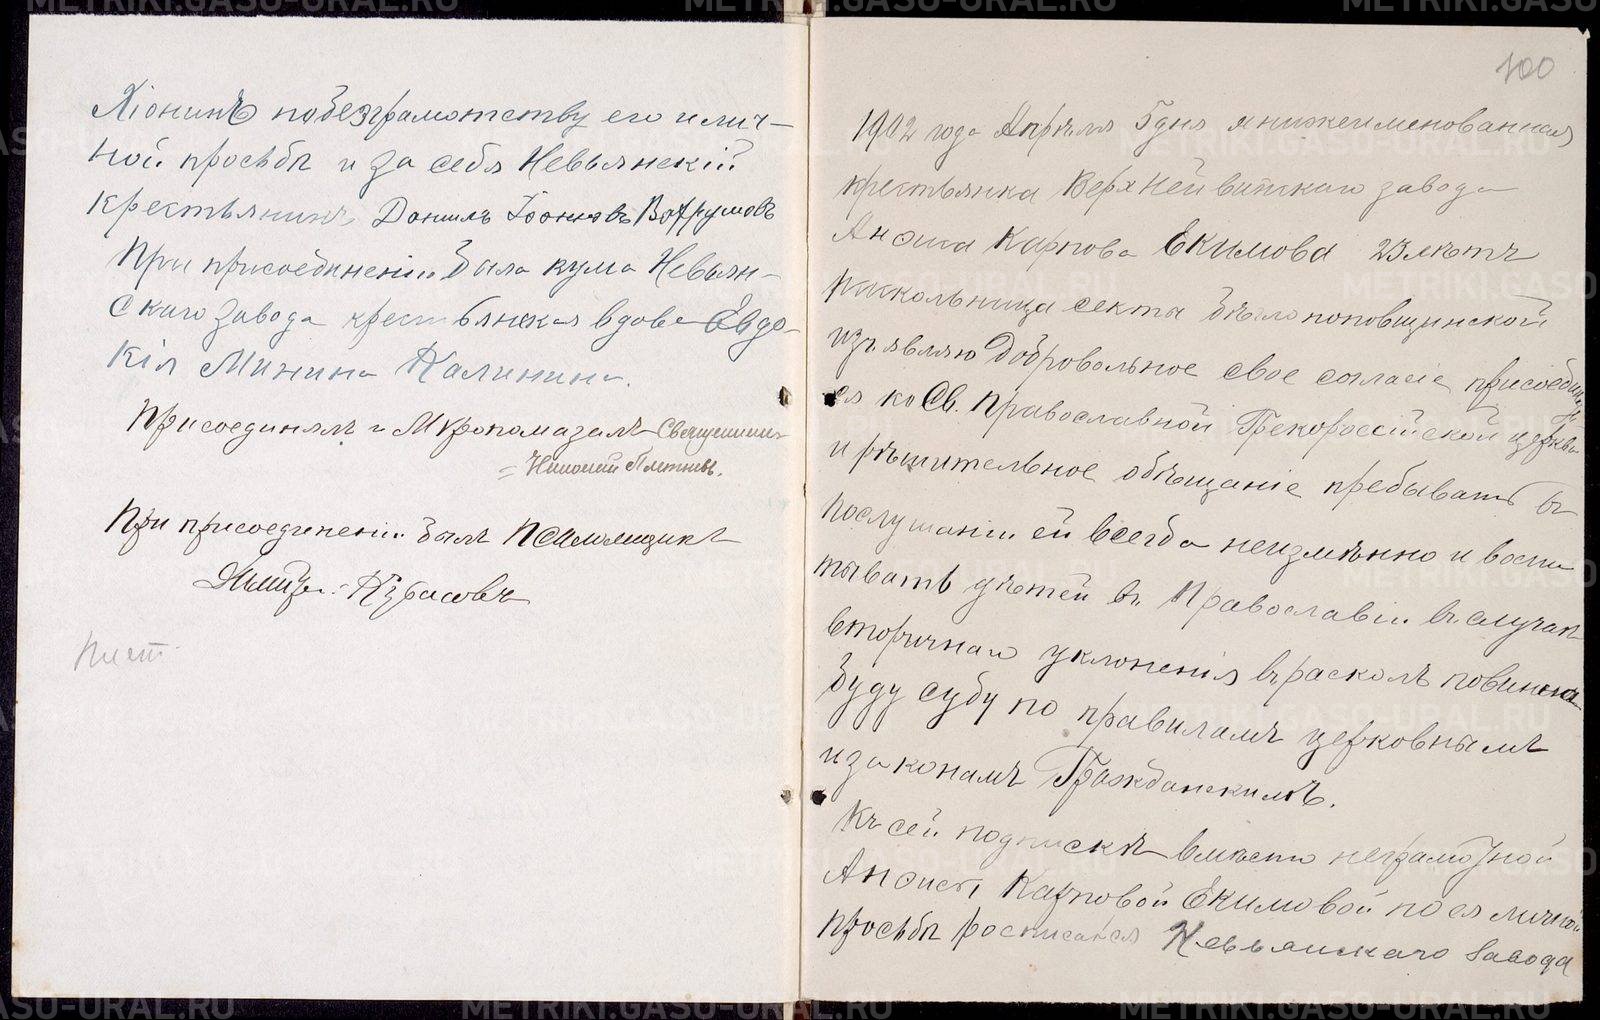 Хіонинъ по безграмотству его и лич-
ной просьбѣ и за себя Невьянскій
крестьянинъ Данилъ Вахрумовъ
При присоединеніи была кума Невьян-
скаго завода крестьянская вдова Евдо-
кія Минина Калинина.
Присоединялъ и Мѵропомазалъ Священникъ
Николай
При присоединеніи былъ Псаломщикъ
100
1902 года Апрѣля 5 дня я нижеименованная
крестьянка Верхнейвинскаго завода
Анѳиса Карпова Екимова 23 лѣтъ
раскольница секты бѣглопоповщинской
изъявляю добровольное свое согласіе присоединить
ся ко Св. Православной Грекороссійской церкви
и рѣшительное обѣщаніе пребывать въ
послушаніи ей всегда неизмѣнно и воспи
тывать дѣтей въ Православіи въ случаѣ
вторичнаго уклоненія въ расколъ повинна
буду суду по правиламъ церковнымъ
и законамъ Гражданскимъ.
Къ сей подпискѣ вмѣсто неграмотной
Анѳисы Карповой Екимовой по ея личной
просьбѣ росписался Невьянскаго завода
METRIKI.GASO-URAL.RU